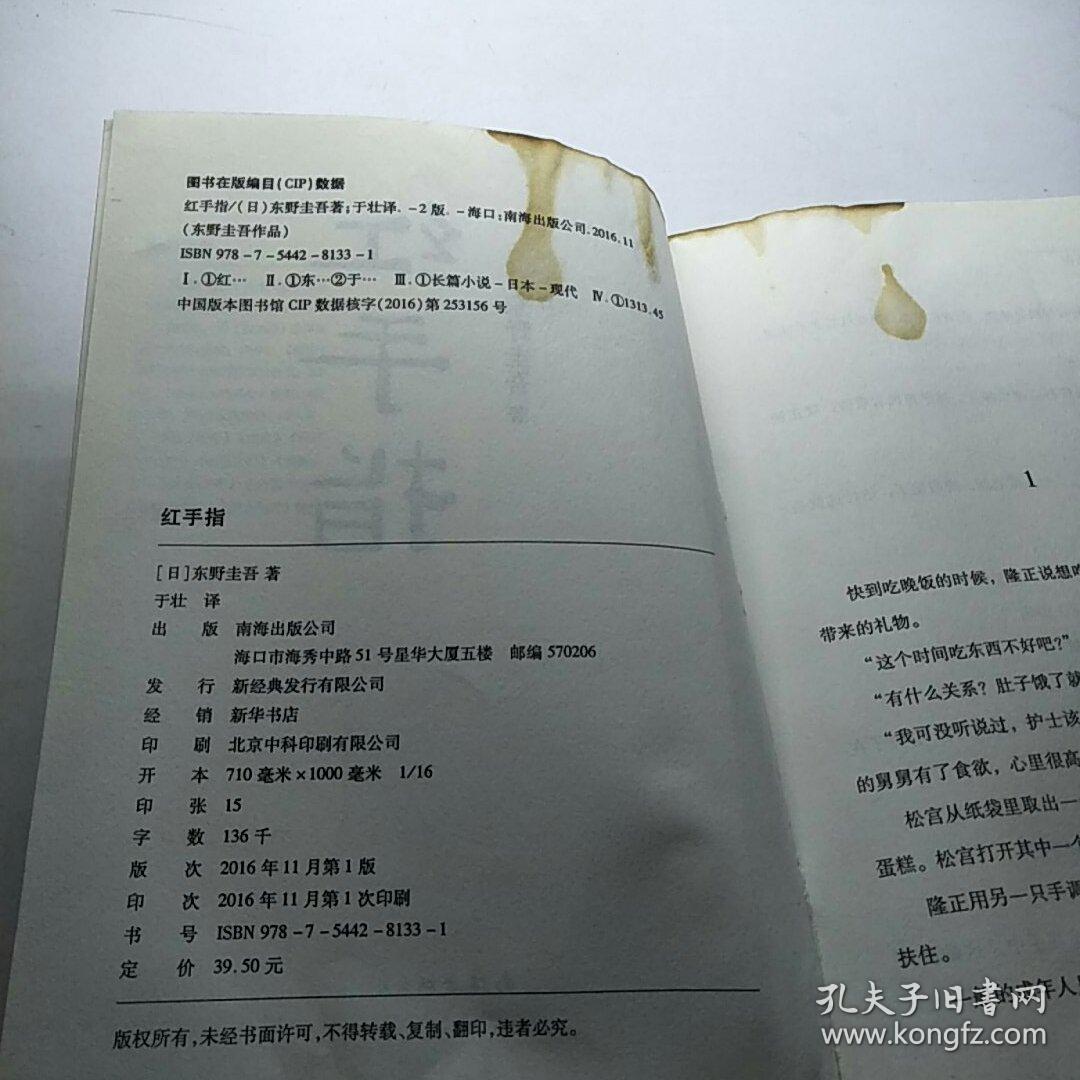 图书在版编目(CIP)数据
红手指/(日)东野圭吾著;于壮译. -2版. -海口:南海出版公司.2016.11
(东野圭吾作品)
ISBN 978-7-5442-8133-1
Ⅰ.①红… Ⅱ.①东…②于… Ⅲ.①长篇小说-日本-现代 Ⅳ.①I313.45
中国版本图书馆CIP数据核字(2016)第253156号
红手指
[日]东野圭吾 著
于壮 译
出 版 南海出版公司
海口市海秀中路51号星华大厦五楼 邮编570206
发 行 新经典发行有限公司
经 销 新华书店
印 刷 北京中科印刷有限公司
开 本 710毫米×1000毫米 1/16
印 张 15
字 数 136千
版 次 2016年11月第1版
印 次 2016年11月第1次印刷
书 号 ISBN 978-7-5442-8133-1
定 价 39.50元
版权所有,未经书面许可,不得转载、复制、翻印,违者必究。
1
快到吃晚饭的时候,隆正说想吃
带来的礼物。
“这个时间吃东西不好吧?”
“有什么关系?肚子饿了就
“我可没听说过,护士该
的舅舅有了食欲,心里很高
松宫从纸袋里取出一
蛋糕。松宫打开其中一个
隆正用另一只手调
扶住。
的成年人
孔夫子旧书网
www.kongfz.com